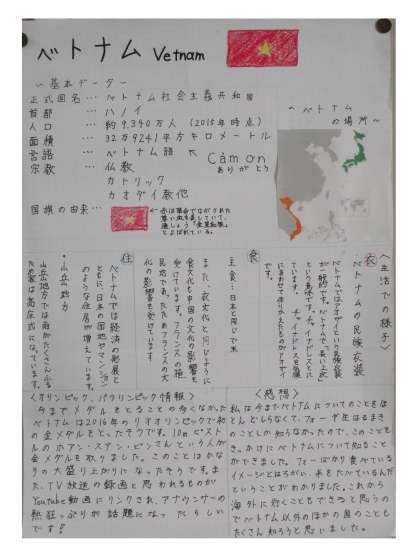 ベトナム Vetnam
～基本データ～
正式国名…ベトナム社会主義共和国
首都…ハノイ
人口…約9,340万人(2015年時点)
面積…32万9241平方キロメートル
言語…ベトナム語
Càm on
ありがとう
宗教…仏教
カトリック
カオダイ教他
～ベトナムの場所～
国旗の由来…
←赤は革命でながされた
とよばれている。
〈生活での様子〉
衣
ベトナムの民族衣装
ベトナムではアオザイという民族衣装
が一般的です。ベトナムで「長い上衣」
という意味です。チャイナドレスに
食
主食…日本と同じで米
また、衣文化と同じように
食文化も中国の文化の影響を
受けています。フランスの植
民地であったためフランスの文
化の影響も受けています
住
ベトナムでは経済の発展と
ともに、日本の団地やマンション
のような住居が増えています。
・山岳地方
山岳地方では雨がたくさんふる
ため家は高床式になっています。
〈オリンピック、パラリンピック情報〉
今までメダルをとることの少なくなかった
ベトナムは2016年のリオオリンピックで初
の金メダルをとったそうです。10mピスト
ルのホアン・スアン・ビンさんという人が
金メダルを取りました。このことはかな
りの大盛り上がりになったそうです。ま
た、TV放送の録画と思われるものが
Youtube動画にリンクされ、アナウンサーの
熱狂っぷりが話題になったらしい
です!
〈感想〉
私は今までベトナムについてのことをほ
とんどしらなくて、フォーや生はるまき
のことしか知らなかったので、このことも
きっかけにベトナムについて知ること
ができました。フォーばかり食べている
イメージとはちがい、米をたべているんだ
ということがわかりました。これから
海外に行くこともできると思うの
でベトナム以外のほかの国のことも
たくさん知ろうと思いました。